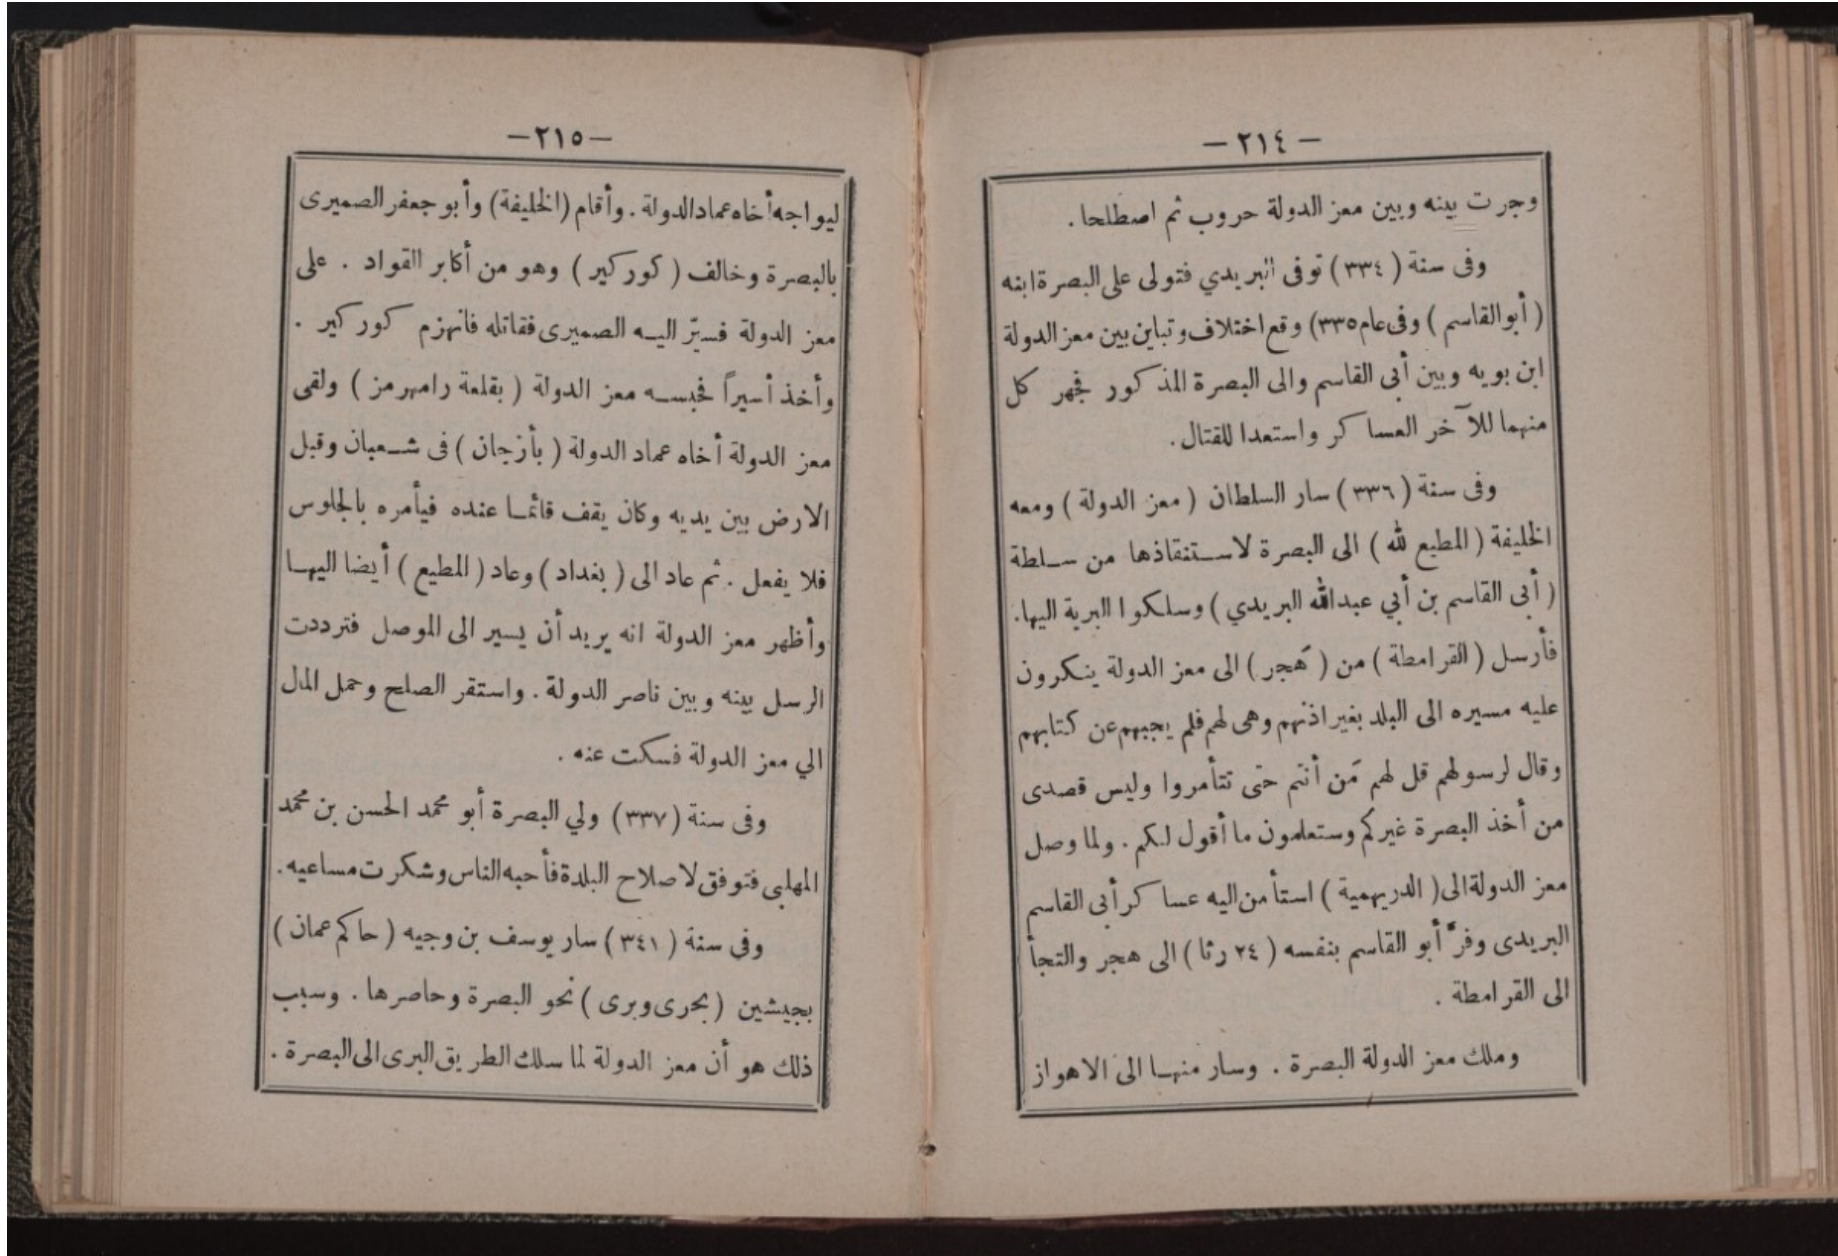 — ٢١٤ —
وجرت بينه وبين معز الدولة حروب ثم اصطلحا .
وفى سنة ( ٣٣٤ ) توفى البريدي فتولى على البصرة ابنه
( أبو القاسم ) وفى عام ٣٣٥) وقع اختلاف وتباين بين معز الدولة
ابن بويه وبين أبى القاسم والى البصرة المذكور فجهر كل
منهما للآخر العساكر واستعدا للقتال .
وفى سنة ( ٣٣٦ ) سار السلطان ( معز الدولة ) ومعه
الخليفة ( المطيع لله ) الى البصرة لاستنقاذها من سلطة
( أبى القاسم بن أبي عبدالله البريدي ) وسلكوا البرية اليها .
فأرسل ( القرامطة ) من ( هَجر ) الى معز الدولة ينكرون
عليه مسيره الى البلد بغير اذنهم وهى لهم فلم يجبهم عن كتابهم
وقال لرسولهم قل لهم مَن أنتم حتى تتأمروا وليس قصدى
من أخذ البصرة غيركم وستعلمون ما أقول لكم . ولما وصل
معز الدولة الى ( الدريهمية ) استأمن اليه عساكر أبى القاسم
البريدى وفرّ أبو القاسم بنفسه ( ٢٤ رثا ) الى هجر والتجأ
الى القرامطة .
وملك معز الدولة البصرة . وسار منها الى الاهواز
— ٢١٥ —
ليواجه أخاه عماد الدولة . وأقام (الخليفة) وأبو جعفر الصميرى
بالبصرة وخالف ( كوركير ) وهو من أكابر القواد . على
معز الدولة فسيّر اليه الصميرى فقاتله فانهزم كوركير .
وأخذ أسيراً فحبسه معز الدولة ( بقلعة رامهرمز ) ولقى
معز الدولة أخاه عماد الدولة ( بأرجان ) فى شعبان وقبل
الارض بين يديه وكان يقف قائما عنده فيأمره بالجلوس
فلا يفعل . ثم عاد الى ( بغداد ) وعاد ( المطيع ) أيضا اليها
وأظهر معز الدولة انه يريد أن يسير الى الموصل فترددت
الرسل بينه وبين ناصر الدولة . واستقر الصلح وحمل المال
الي معز الدولة فسكت عنه .
وفى سنة ( ٣٣٧ ) ولي البصرة أبو محمد الحسن بن محمد
المهلبى فتوفق لاصلاح البلدة فأحبه الناس وشكرت مساعيه .
وفى سنة ( ٣٤١ ) سار يوسف بن وجيه ( حاكم عمان )
بجيشين ( بحرى وبرى ) نحو البصرة وحاصرها . وسبب
ذلك هو أن معز الدولة لما سلك الطريق البرى الى البصرة .